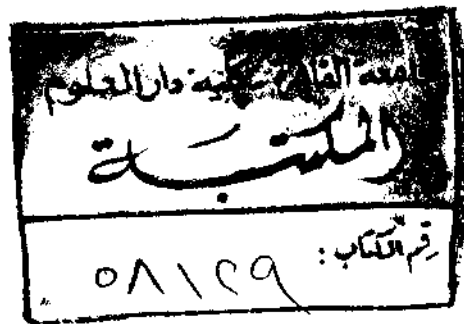 جامعة القاهرة - كلية دار العلوم
المكتبة
رقم الكتاب :
٥٨١٢٩